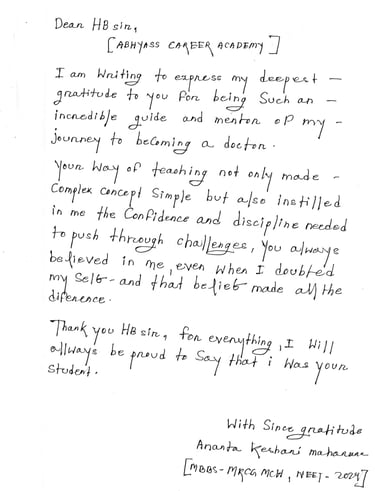 Dear HB sir,
[ABHYASS CAREER ACADEMY]
I am writing to express my deepest -
gratitude to you for being Such an -
incredible guide and mentor of my -
journey to becoming a doctor.
Your way of teaching not only made -
Complex concept Simple but also instilled
in me the Confidence and discipline needed
to push through challenges, You always
believed in me, even when I doubted
my Self - and that belief made all the
diference.
Thank you HB sir, for everything, I will
allways be proud to Say that i was your
Student.
With Since gratitude
Ananta Keshari
[MBBS - MKCG MCH, NEET - 2024]